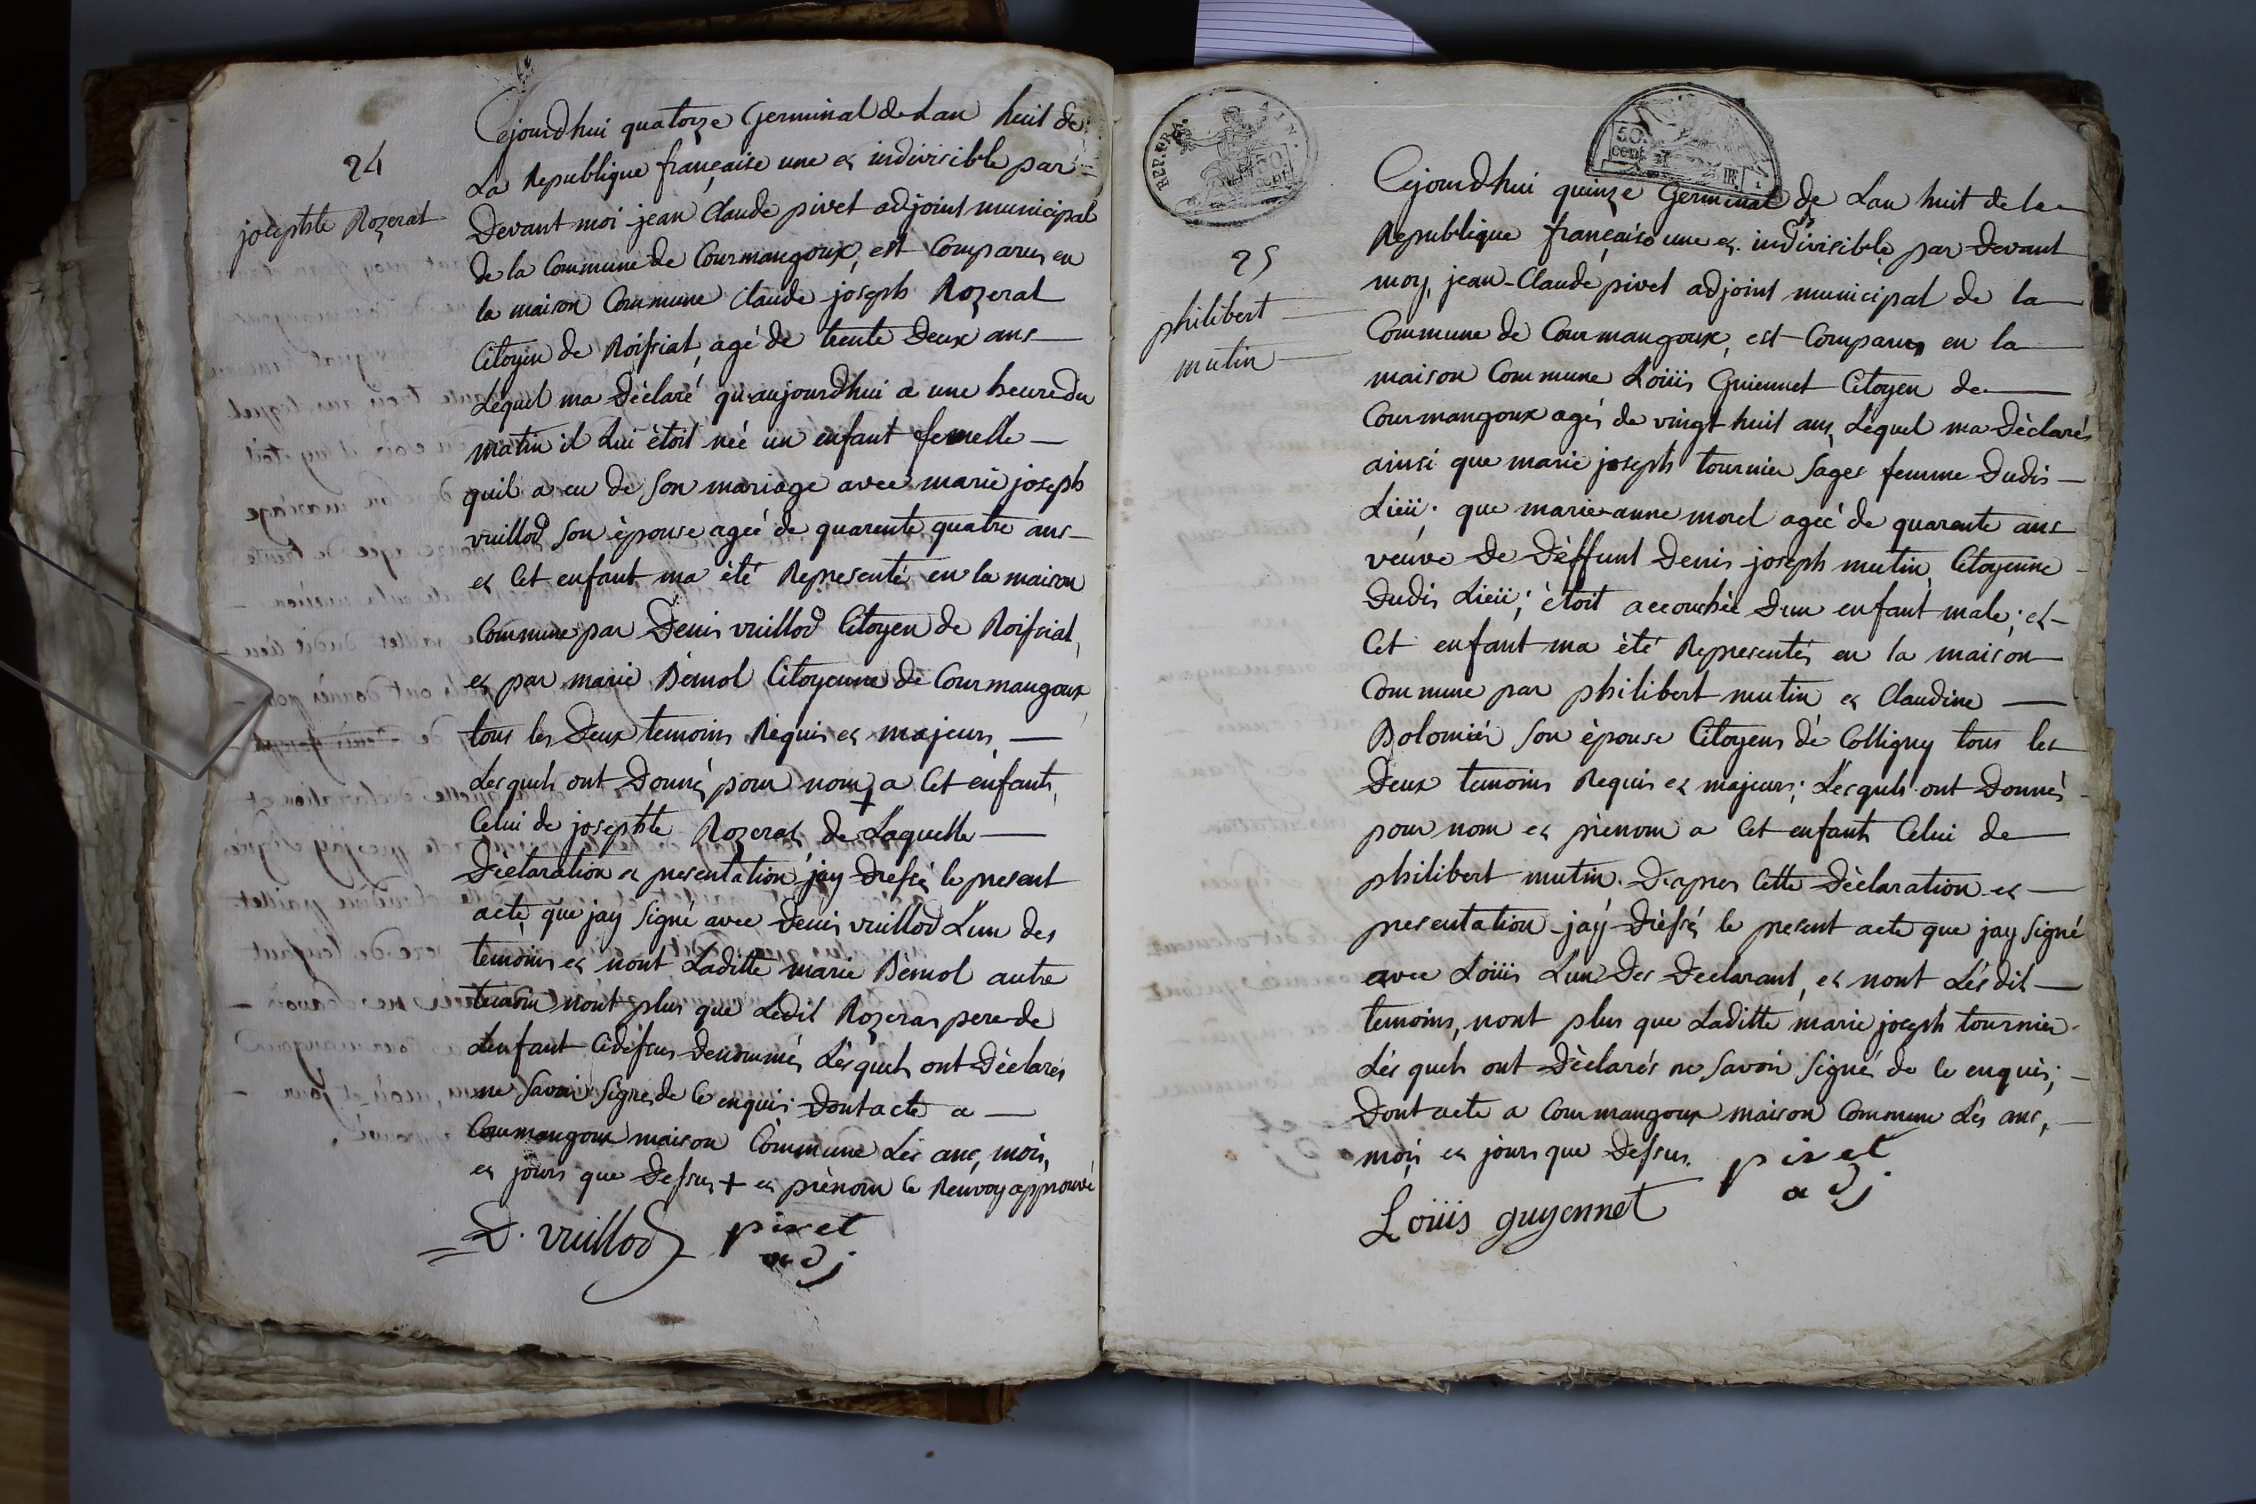 24
josephte Rozerat
Cejourdhui quatorze Germinal de Lan huit de
La Republique française une et indivisible par
Devant moi jean Claude pivet adjoint municipal
de la Commune de Courmangoux, est Comparus en
la maison Commune Claude joseph Rozerat
Citoyen de Roissiat, agé de trente Deux ans
Léquel ma Déclaré qu'aujourdhui a une heure du
matin il lui étoit néé un enfant femelle
quil a eu de son mariage avec marie joseph
vuillod son épouse ageé de quarente quatre ans
et Cet enfant ma été Representé en la maison
Commune par Denis vuillod Citoyen de Roissiat,
et par marie Bémol Citoyenne de Courmangoux
tous les Deux temoins Requis et majeurs,
Lesquels ont Donnés pour nom + a Cet enfants,
Celui de josephte Rozerat, de Laquelle
Déclaration et presentation jay Dressé le present
acte que jay signé avec Denis vuillod L'un des
temoins et nont Laditte marie Bémol autre
temoin nont plus que Ledit Rozerat pere de
Lenfant Cidéssus denommés Lésquels ont Déclarés
ne savoir signes de Ce enquis. Dont acte a
Courmangoux maison Commune Lés ans, mois,
et jours que Dessus + et prénom le Renvoy approuvé
D. vuillod pivet
adj
REP. FRA.
50
cent.
50.
cent.
25
philibert
mutin
Cejourdhui quinze Germinal de Lan huit de la
Republique française une et indivisible par Devant
moy, jean-Claude pivet adjoint municipal de la
Commune de Courmangoux, est Comparus en la
maison Commune Loüis Guiennet Citoyen de
Courmangoux agés de vingt huit ans, Léquel ma Déclarés
ainsi que marie joseph tournier Sages femme Dudis
Lieü; que marie-anne morel ageé de quarante ans
veúve De Déffunt Denis joseph mutin, Citoyenne
Dudis Lieü; étoit accouchéé Dun enfant male; et
Cet enfant ma été Representés en la maison
Commune par philibert mutin et Claudine
Bolomiér son épouse Citoyens dé Colligny tous les
Deux temoins Requis et majeurs; Lesquels ont Donnés
pour nom et prénom a Cet enfants Celui de
philibert mutin. D'apres Cette Déclaration et
presentation jaÿ Dréssé le present acte que jay signé
avec Loüis L'un Des Declarant, et nont Lésdit
temoins, nont plus que Laditte marie joseph tournier
Lésquels ont Déclarés ne savoir signés de Ce enquis;
Dont acte a Courmangoux maison Commune Lés ans,
mois et jours que Dessus. pivet
adj
Loüis guyennet